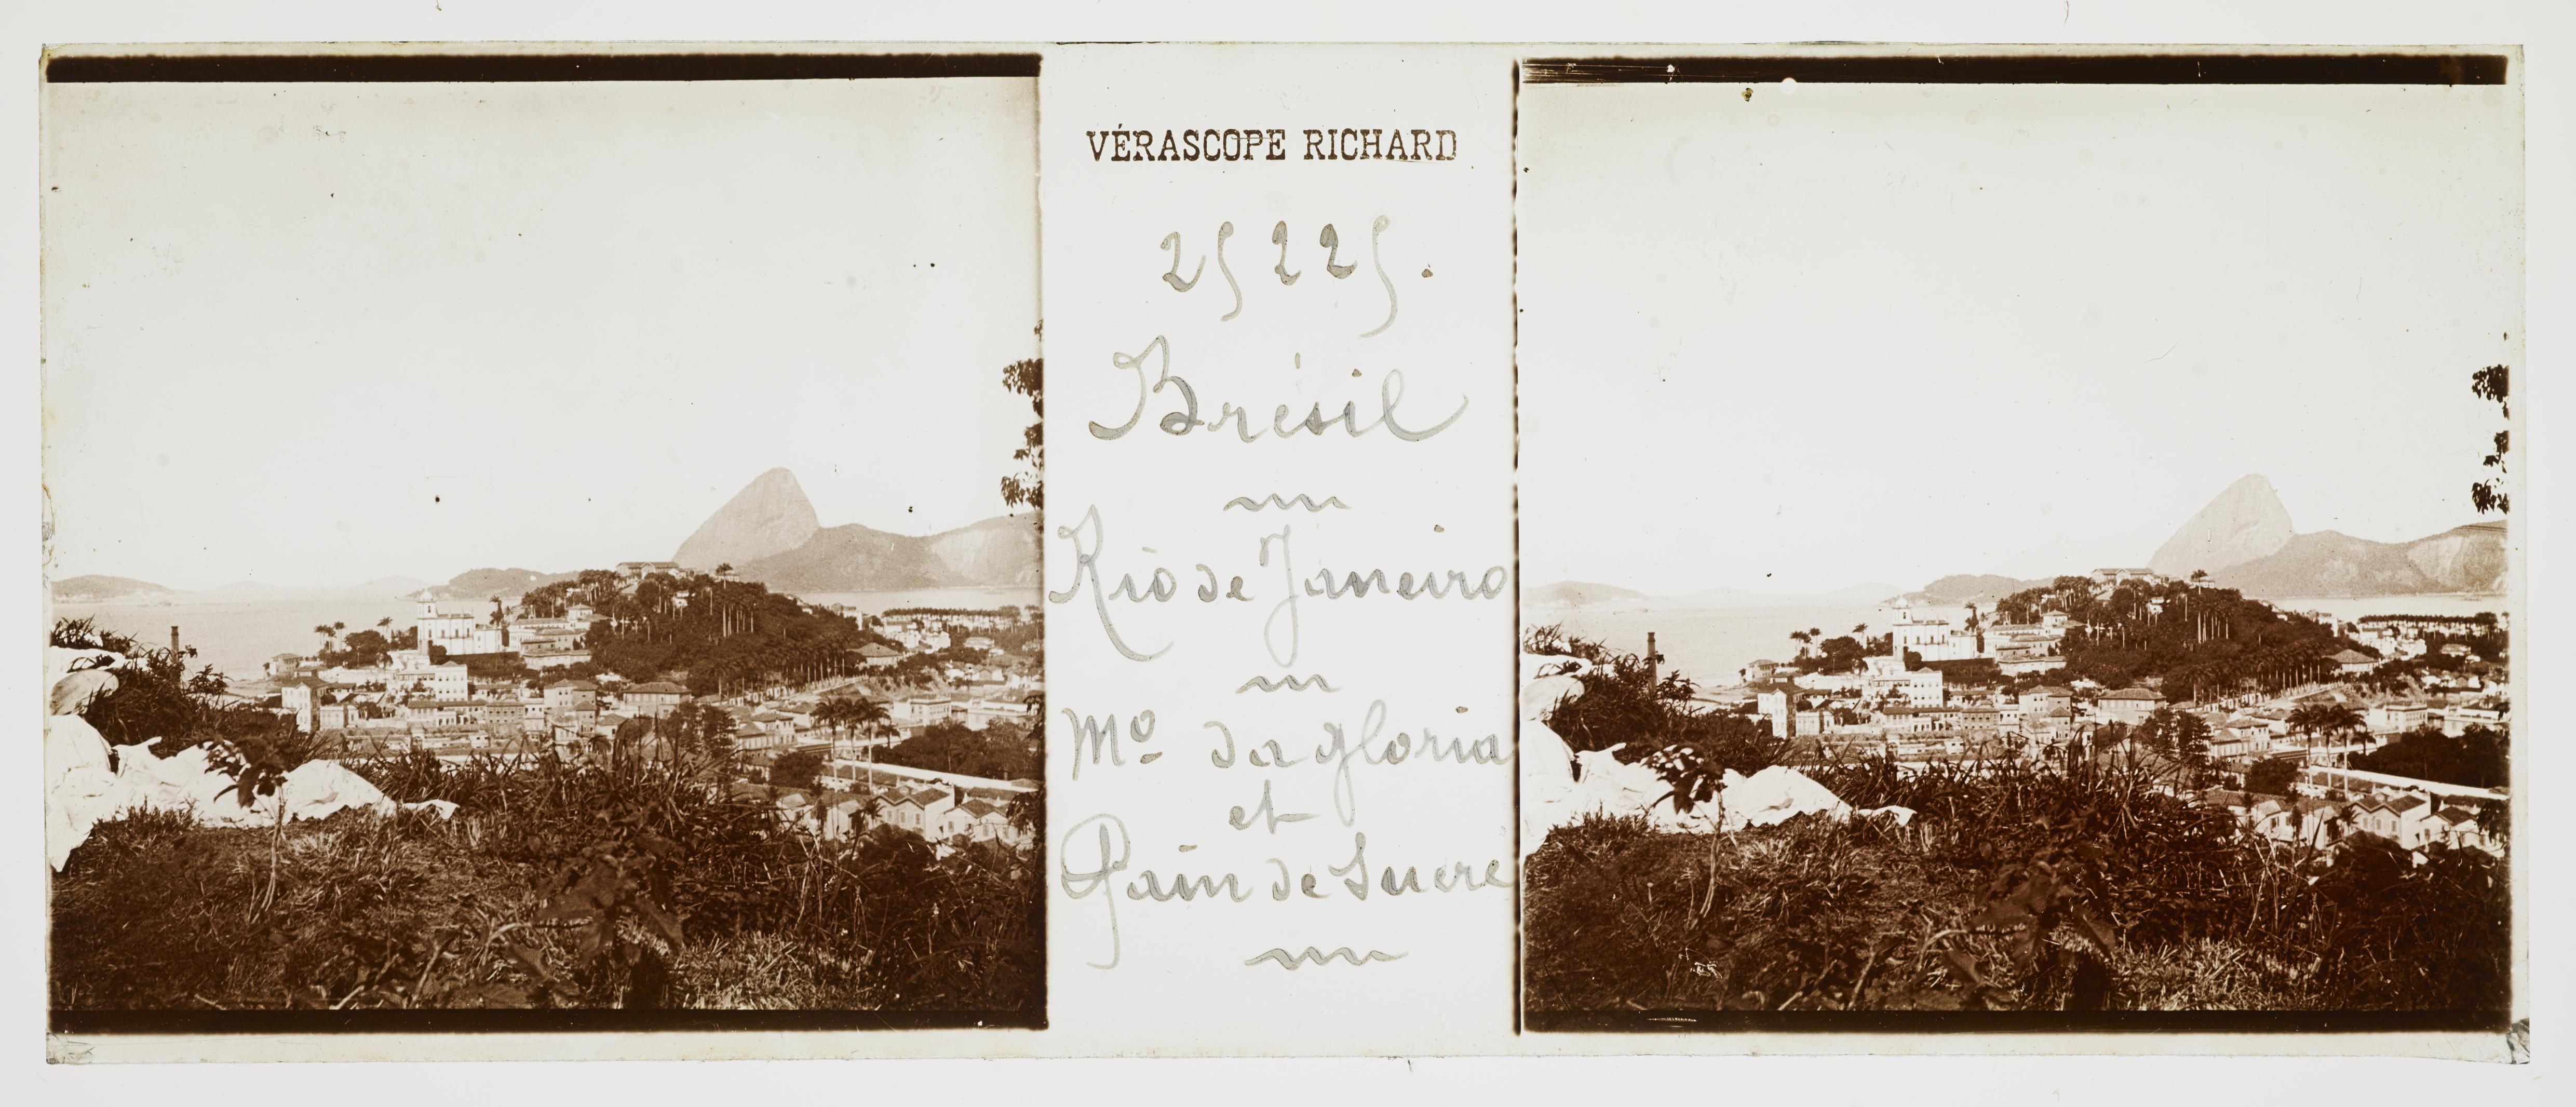 VÉRASCOPE RICHARD
25225.
Brésil
Rio de Janeiro
Mº da gloria
et
Pain de Sucre